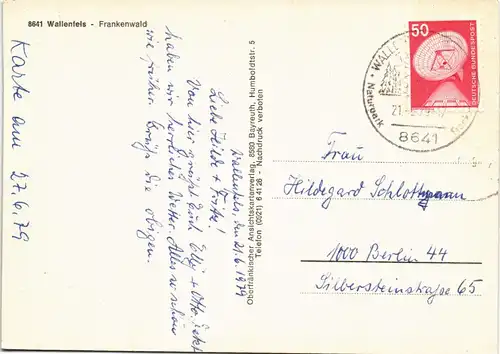 8641 Wallenfels - Frankenwald
Karte am 27.6.79
Wallenfels, den 21.6.1979
Liebe Hilde +
Von hier grüßt Euch Elly + Otto. Jetzt
haben wir herrliches Wetter. Alles so schön
wie früher. Grüße die obigen.
Oberfränkischer Ansichtskartenverlag, 8580 Bayreuth, Humboldtstr. 5
Telefon (0921) 6 41 26 - Nachdruck verboten
50
DEUTSCHE BUNDESPOST
WALLE
Naturpark
21.
8641
Frau
Hildegard Schlottmann
1000 Berlin 44
Silbersteinstraße 65